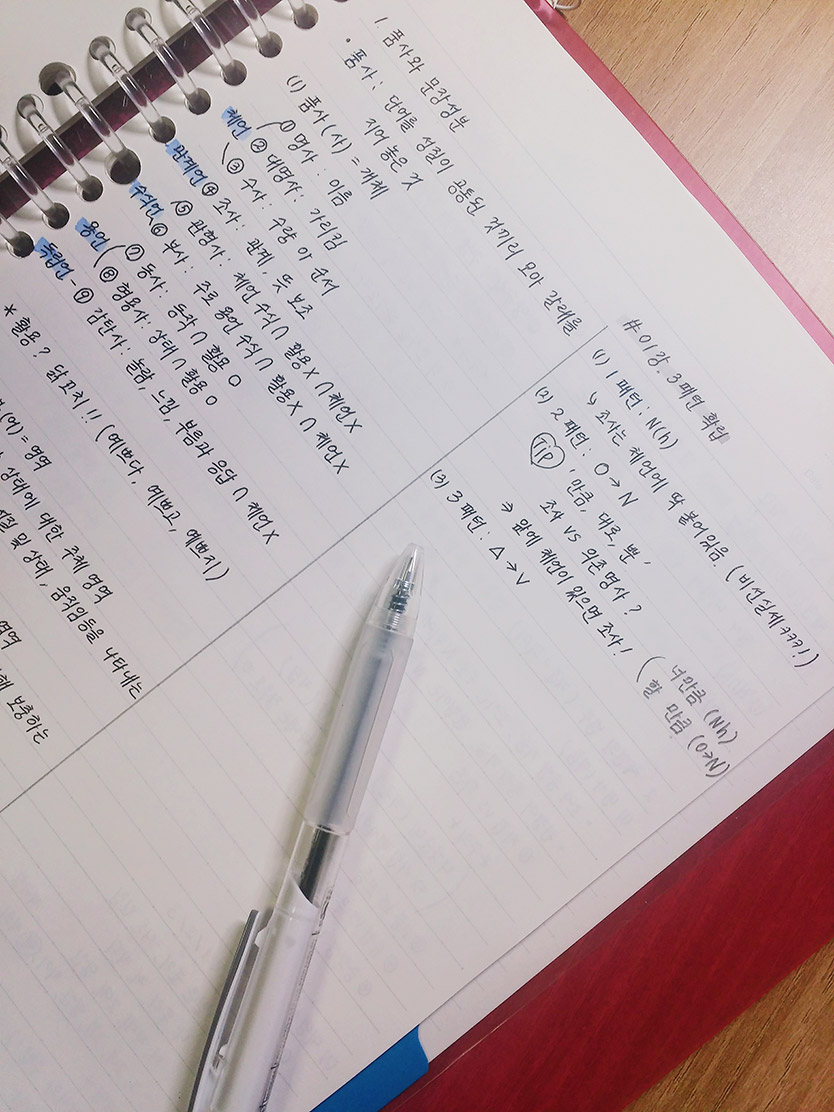 1. 품사와 문장성분
• 품사 : 단어를 성질이 공통된 것끼리 모아 갈래를
지어 놓은 것
(1) 품사(사) = 개체
① 명사 : 이름
체언 ② 대명사 : 가리킴
③ 수사 : 수량 or 순서
관계언 ④ 조사 : 관계, 뜻 보조
⑤ 관형사 : 체언 수식 ∩ 활용 X ∩ 체언 X
수식언 ⑥ 부사 : 주로 용언 수식 ∩ 활용 X ∩ 체언 X
⑦ 동사 : 동작 ∩ 활용 O
용언 ⑧ 형용사 : 상태 ∩ 활용 O
독립언 - ⑨ 감탄사 : 놀람, 느낌, 부름과 응답 ∩ 체언 X
* 활용? 닭꼬치!! (예쁘다, 예쁘고, 예쁘지)
(어) = 영역
상태에 대한 주체 영역
및 상태, 움직임등을 나타내는
영역
보충하는
# 01강. 3패턴 확립
(1) 1패턴 : N(h)
↳ 조사는 체언에 딱 붙어있음. (비선실세 ㅋㅋㅋ!)
(2) 2패턴 : O → N
Tip , 만큼, 대로, 뿐,
조사 vs 의존명사?
⇒ 앞에 체언이 있으면 조사!
너만큼 (Nh)
할 만큼 (O→N)
(3) 3패턴 : △ → V